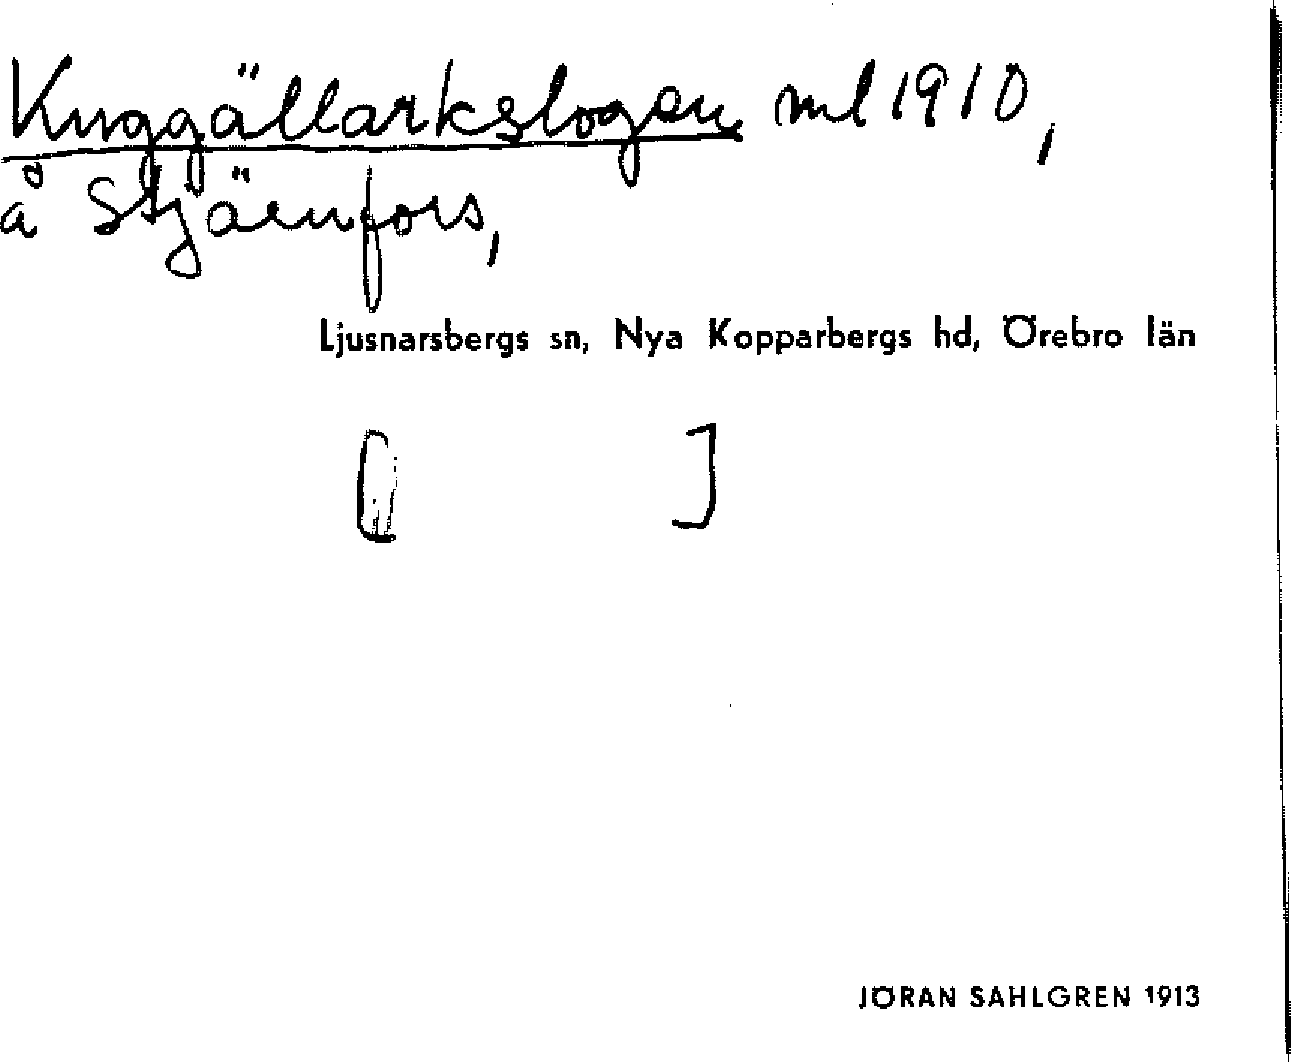 Kuggällarkslogen ml 1910,
å Stjärnfors,
Ljusnarsbergs sn, Nya Kopparbergs hd, Örebro län
[ ]
JÖRAN SAHLGREN 1913